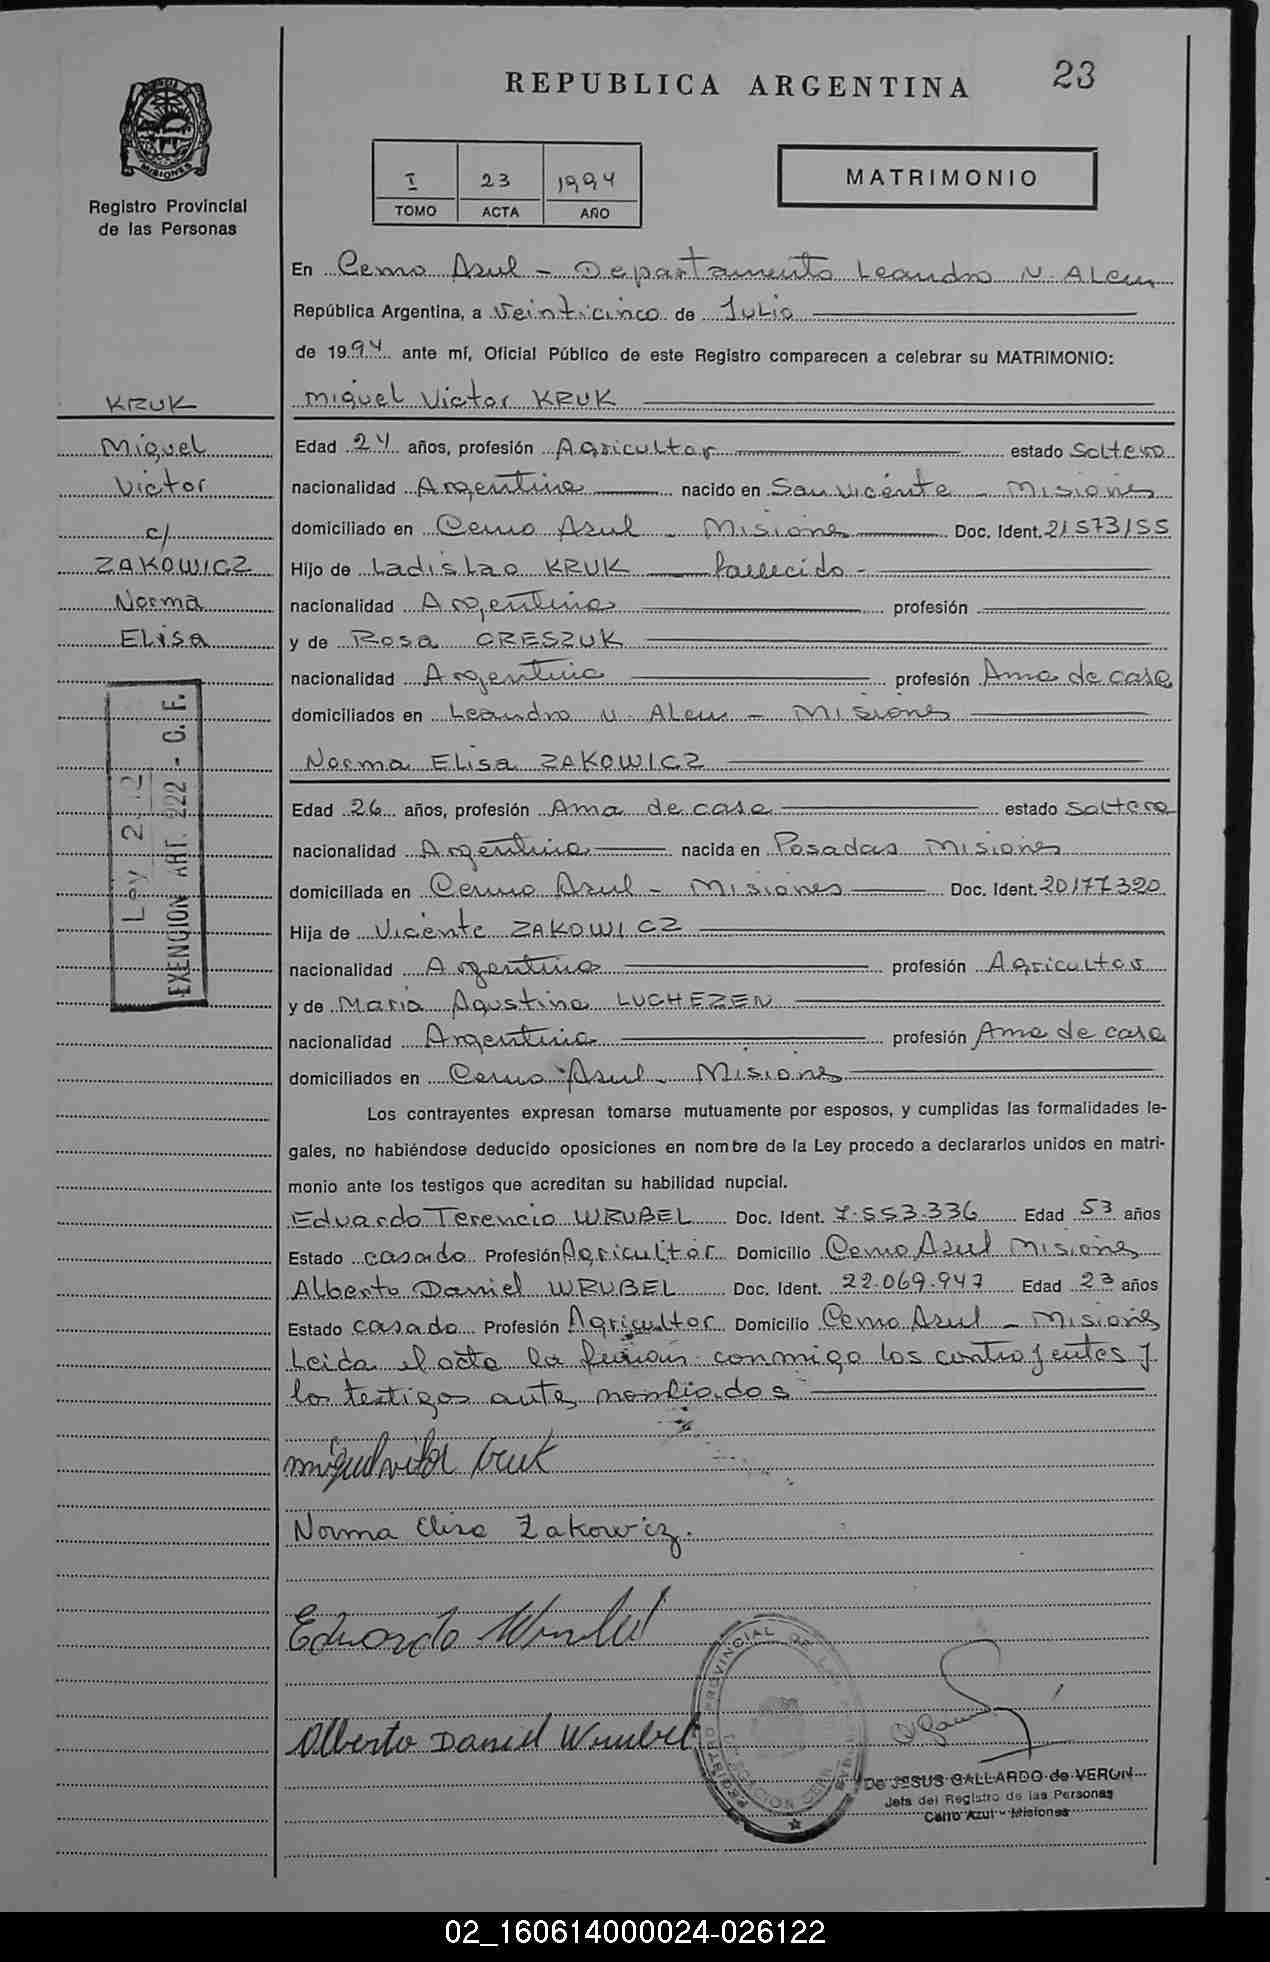 REPUBLICA ARGENTINA
23
MISIONES
Registro Provincial
de las Personas
I 23 1994
TOMO ACTA AÑO
MATRIMONIO
En Cerro Azul - Departamento Leandro N. Alem
República Argentina, a veinticinco de Julio
de 1994 ante mí, Oficial Público de este Registro comparecen a celebrar su MATRIMONIO:
Miguel Victor KRUK
Edad 24 años, profesión Agricultor estado Soltero
nacionalidad Argentina nacido en San Vicente - Misiones
domiciliado en Cerro Azul - Misiones Doc. Ident. 21573155
Hijo de Ladislao KRUK fallecido -
nacionalidad Argentina profesión
y de Rosa CRESZUK
nacionalidad Argentina profesión Ama de casa
domiciliados en Leandro N. Alem - Misiones
Norma Elisa ZAKOWICZ
Edad 26 años, profesión Ama de casa estado Soltera
nacionalidad Argentina nacida en Posadas Misiones
domiciliada en Cerro Azul - Misiones Doc. Ident. 20177320
Hija de Vicente ZAKOWICZ
nacionalidad Argentina profesión Agricultor
y de Maria Agustina LUCHEZEN
nacionalidad Argentina profesión Ama de casa
domiciliados en Cerro Azul - Misiones
Los contrayentes expresan tomarse mutuamente por esposos, y cumplidas las formalidades le-
gales, no habiéndose deducido oposiciones en nombre de la Ley procedo a declararlos unidos en matri-
monio ante los testigos que acreditan su habilidad nupcial.
Eduardo Terencio WRUBEL Doc. Ident. 7.553.336 Edad 53 años
Estado casado Profesión Agricultor Domicilio Cerro Azul Misiones
Alberto Daniel WRUBEL Doc. Ident. 22.069.947 Edad 23 años
Estado casado Profesión Agricultor Domicilio Cerro Azul - Misiones
Leida el acta la firman conmigo los contrayentes y
los testigos ante nombrados
Miguel Vitor Kruk
Norma Elisa Zakowicz.
Eduardo Wrubel
Alberto Daniel Wrubel
KRUK
Miguel
Victor
c/
ZAKOWICZ
Norma
Elisa
Ley 2
EXENCION ART. 222 - C. F.
REGISTRO PROVINCIAL DE LAS
De JESUS GALLARDO de VERON
Jefa del Registro de las Personas
Cerro Azul - Misiones
02_160614000024-026122